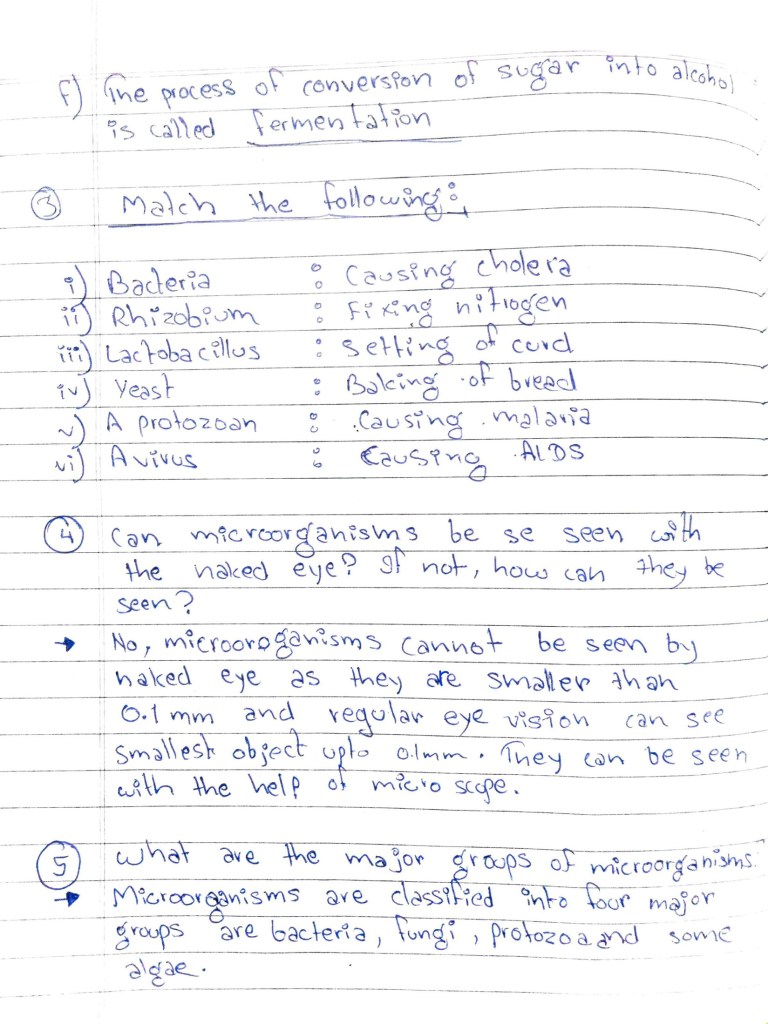 f) The process of conversion of sugar into alcohol
is called fermentation
3 Match the following:
i) Bacteria : Causing cholera
ii) Rhizobium : Fixing nitrogen
iii) Lactobacillus : Setting of curd
iv) Yeast : Baking of bread
v) A protozoan : Causing malaria
vi) A virus : Causing AIDS
4 Can microorganisms be se seen with
the naked eye? If not, how can they be
seen?
→ No, microorganisms cannot be seen by
naked eye as they are smaller than
0.1 mm and regular eye vision can see
smallest object upto 0.1mm. They can be seen
with the help of micro scope.
5 What are the major groups of microorganisms.
→ Microorganisms are classified into four major
groups are bacteria, fungi, protozoa and some
algae.